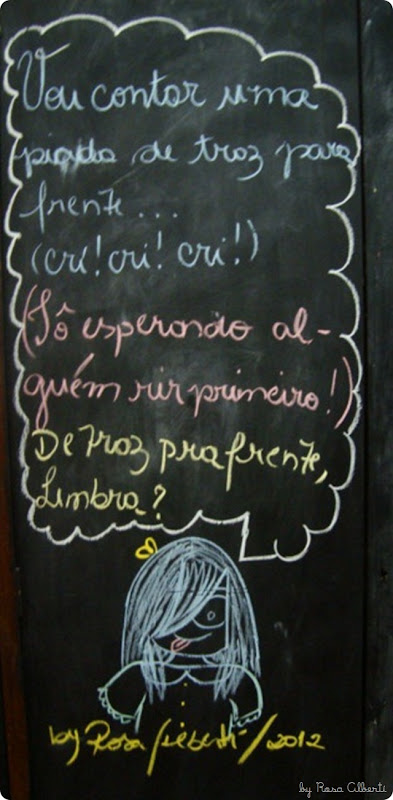 Vou contar uma
piada de troz para
frente...
(cri! cri! cri!)
(Tô esperando al-
guém rir primeiro!)
De troz pra frente,
Limbra?
by Rosa /2012
by Rosa Alberti